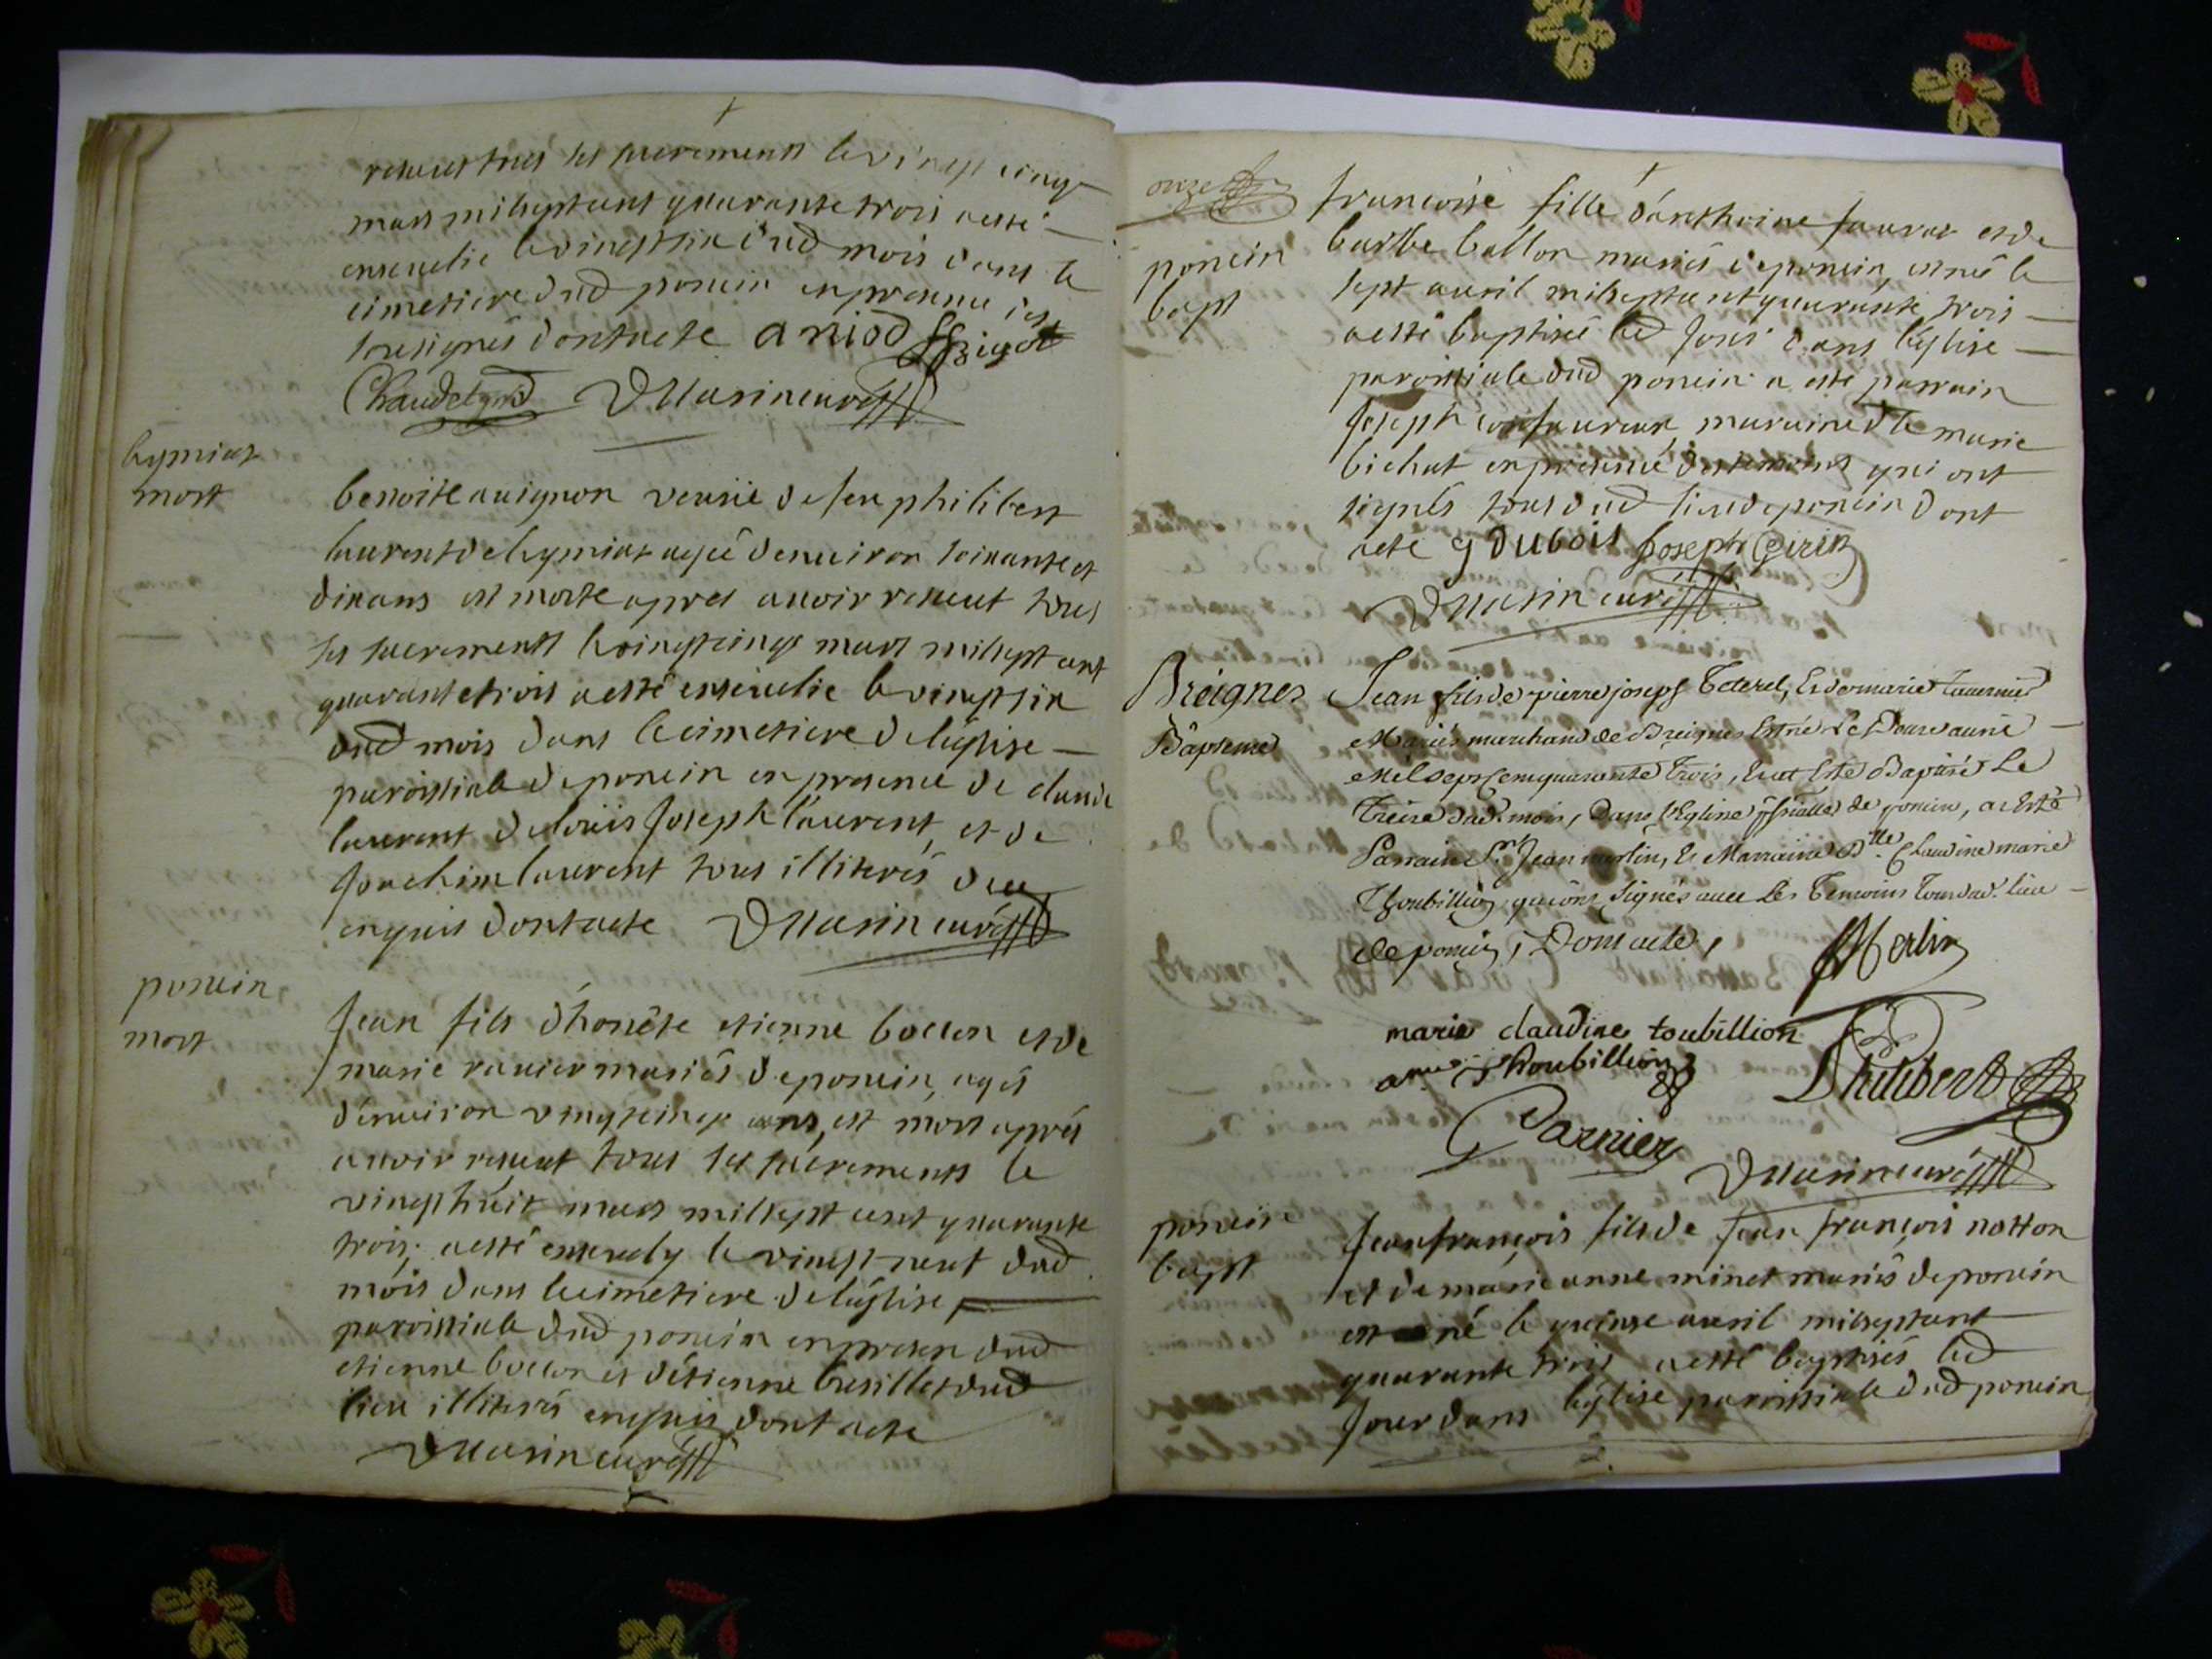 receut tous les sacrements le vingt cinq
mars mil sept cent quarante trois a esté
ensevelie le vingt six dud mois dans le
cimetiere dud poncin en presence des
soussignés dont acte aniod
Chaudelynd D Marin curé
leymiat
mort
benoite auignon veusue de feu philibert
laurent de leymiat agée denuiron soixante et
dix ans est morte apres auoir receut tous
les sacrements le vingt cinq mars mil sept cent
quarante trois a esté ensevelie le vingt six
dud mois dans le cimetiere de léglise
paroissiale de poncin en presence de claude
laurent de loüis Joseph laurent, et de
Joachim laurent tous illiterés de ce
enquis dont acte D Marin curé
poncin
mort
Jean fils d'honête etienne bollon et de
marie ravier mariés de poncin, agés
d'enuiron vingt cinq ans, est mort aprés
auoir receut tous les sacrements le
vingt huit mars mil sept cent quarante
trois, a esté ensevely le vingt neuf dud
mois dans le cimetiere de léglise
paroissiale dud poncin en presen dud
etienne bollon et d'étienne bresillet dud
lieu illiterés enquis dont acte
D Marin curé
onze
poncin
bapt
francoise fille d'anthoine sauvat et de
barbe ballon mariés de poncin, est née le
sept auril mil sept cent quarante trois
a esté baptisée led jour dans léglise
paroissiale dud poncin a esté parrain
Joseph marraine dlle marie
bichat en presence des temoins qui ont
signés tous dud lieu de poncin dont
acte g Dubois Joseph Girin
D Marin curé
Breignes
Bapteme
Jean fils de pierre joseph Teterel, Et de marie tauernier
Mariés marchand de Breignes Est né Le Douze auril
Mel Sept Cent quarante Trois, Et at Esté Baptisé Le
Treize dud. mois, Dans l'Eglise pssialle de poncin, a Esté
Parrain Sr. Jean merlin, Et Marraine Dlle. Claudine marie
Thoubillion qui ont Signés auec Les Temoins Tous dud. lieu
de poncin, Dont acte, JMerlin
marie claudine toubillion
anne Thoubillion Philibert
Garnier
D Marin curé
poncin
bapt
Jean françois fils de Jean françois notton
et de marie anne minet mariés de poncin
est né le quinze auril mil sept cent
quarante trois a esté baptisés led
Jour dans léglise paroissiale dud poncin